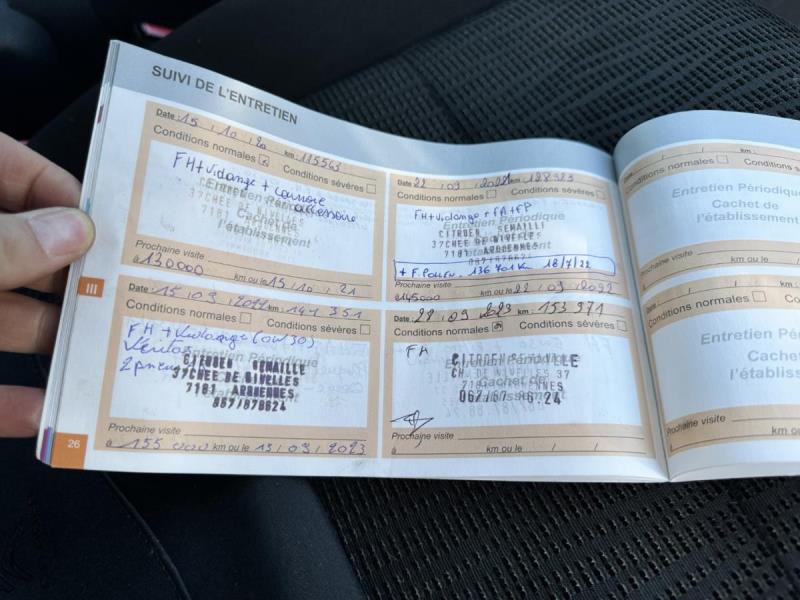 SUIVI DE L'ENTRETIEN
Date : 15 / 10 / 20 km : 115563
Conditions normales Conditions sévères
FH + Vidange + courroie
accessoire
Entretien Périodique
37CHEE DE NIVELLES
Cachet de
l'établissement
Prochaine visite
à 130000 km ou le 15 / 10 / 21
Date : 22 / 09 / 2021 km : 128923
Conditions normales Conditions sévères
FH + Vidange + FA + FP
Entretien Périodique
CITROEN SEMAILLE
37CHEE DE NIVELLES
7181 ARQUENNES
067/878624
+ F. Pollen. 136 701 Km 18/7/22
Prochaine visite
à 145000 km ou le 22 / 09 / 2022
III
Date : 15 / 09 / 2022 km : 141 351
Conditions normales Conditions sévères
FH + Vidange (0W30)
2 pneus
Entretien Périodique
CITROEN SEMAILLE
37CHEE DE NIVELLES
7181 ARQUENNES
067/878624
Prochaine visite
à 155 000 km ou le 15 / 09 / 2023
26
Date : 28 / 09 / 2023 km : 153 971
Conditions normales Conditions sévères
FH
Entretien Périodique
CH. DE NIVELLES 37
Cachet de
Prochaine visite
à km ou le / /
Date : / / km :
Conditions normales Conditions sévères
Entretien Périodique
Cachet de
l'établissement
Prochaine visite
à km ou le /
Date : / /
Conditions normales
Entretien Périodique
Cachet
l'établissement
Prochaine visite
km ou le